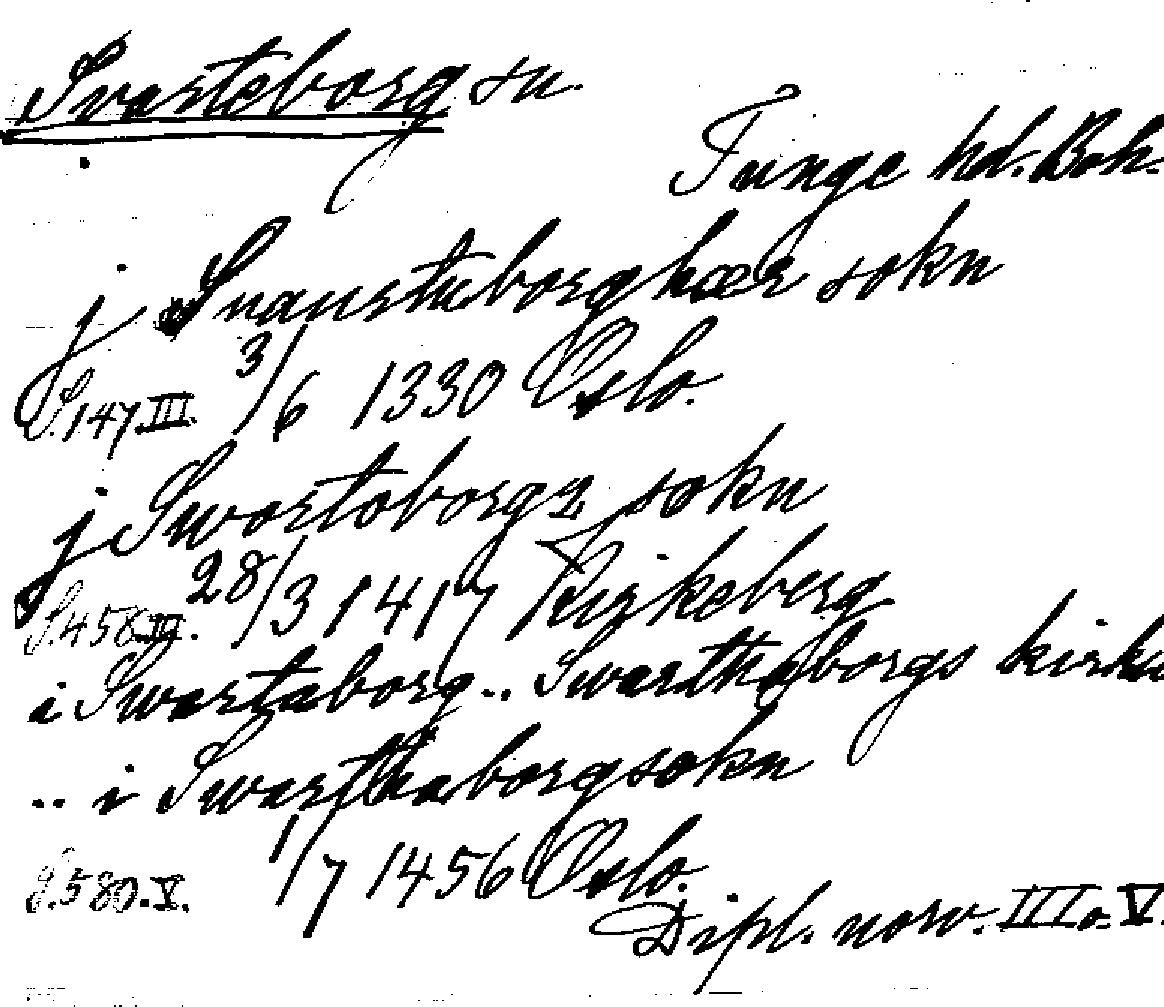 Svarteborg sn.
Tunge hd. Boh.
j Suartuborghær sokn
S. 147. III. 3/6 1330 Oslo.
j Swartoborgx sokn
S. 458 III. 28/3 1417 Kirkeberg
i Swartaborg .. Swarthaborgs kirku
.. i Swarthaborgsokn
S. 580. V. 1/7 1456 Oslo.
Dipl. norv. III o. V.